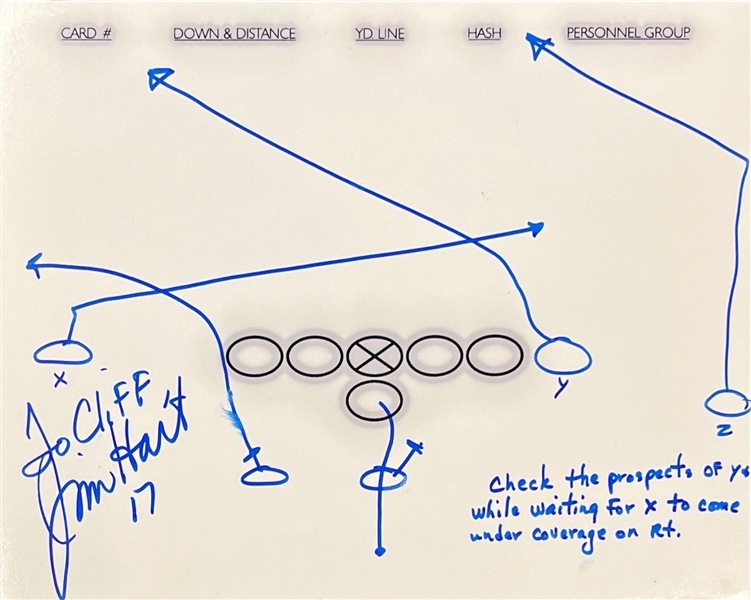 CARD #   DOWN & DISTANCE   YD. LINE   HASH   PERSONNEL GROUP
X
Y
Z
To: Cliff
Jim Hart
17
Check the prospects of Y
while waiting for X to come
under coverage on Rt.